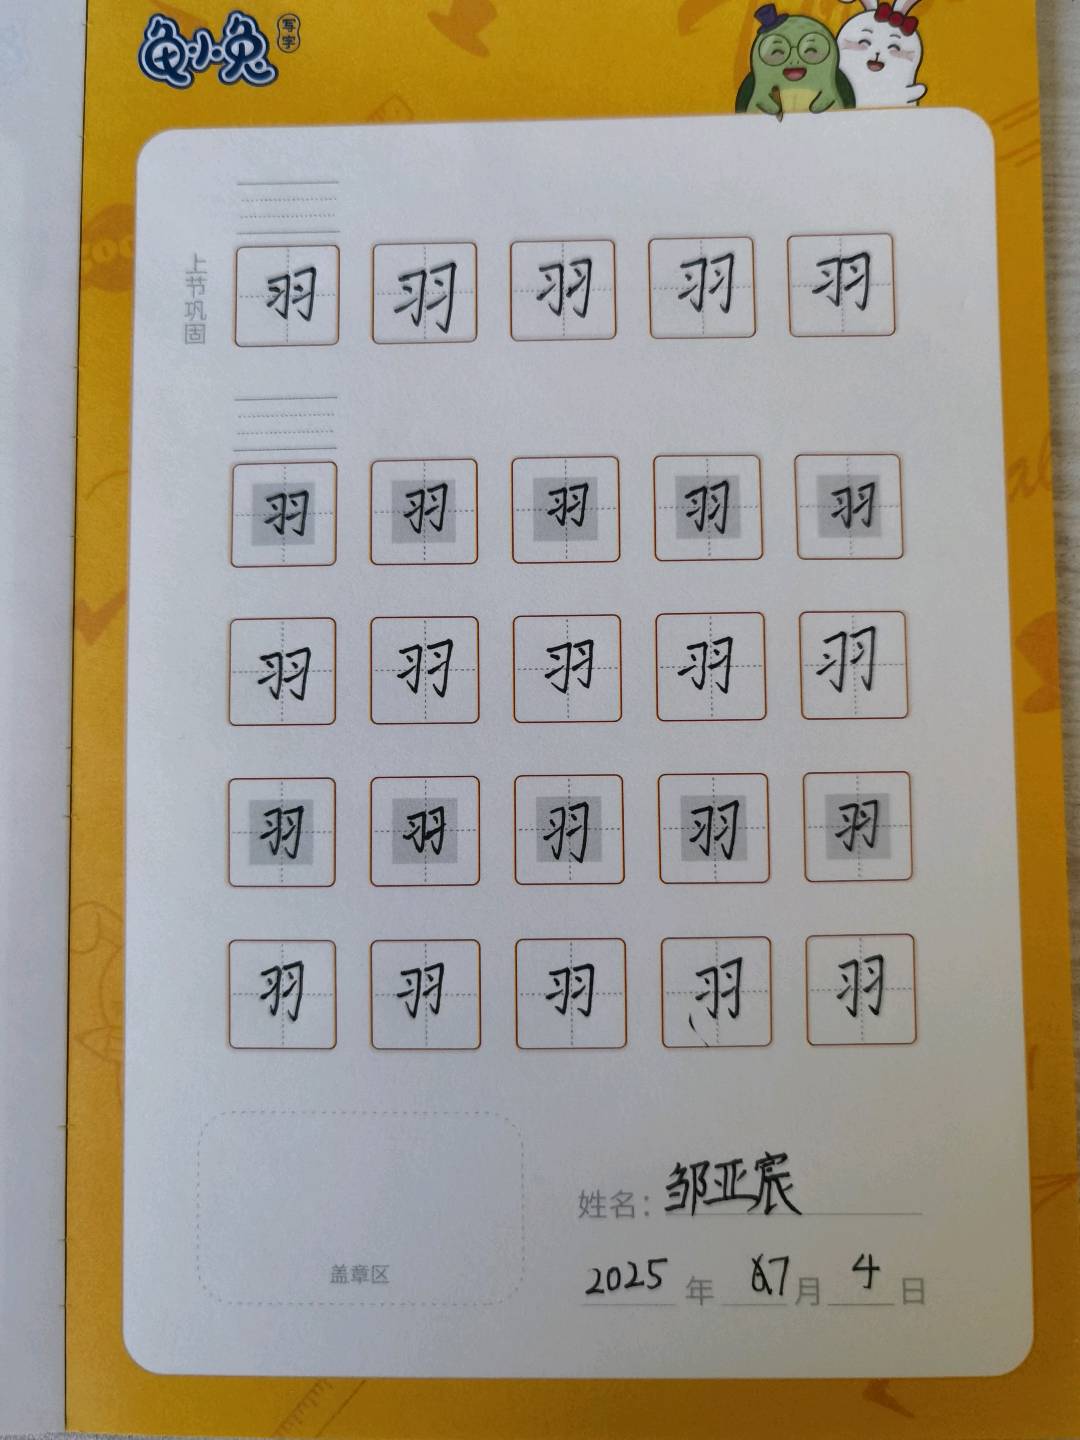 龟小兔 写字
上节巩固
羽 羽 羽 羽 羽
羽 羽 羽 羽 羽
羽 羽 羽 羽 羽
羽 羽 羽 羽 羽
羽 羽 羽 羽 羽
姓名：邹亚宸
盖章区
2025 年 7 月 4 日